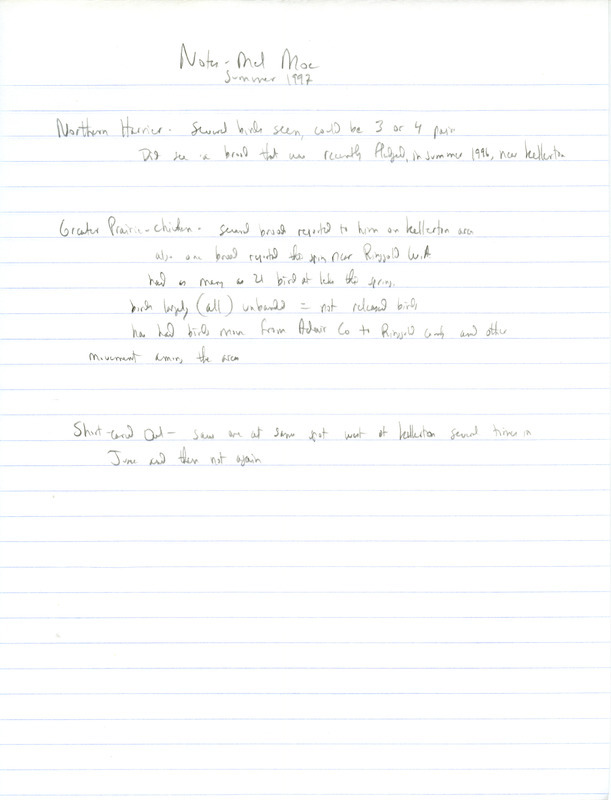 Notes - Mel Moe
Summer 1997
Northern Harrier - Several birds seen, could be 3 or 4 pair
Did see a brood that was recently fledged, in summer 1996, near kellerton
Greater Prairie-chicken - several brood reported to him on kellerton area
also one brood reported this spring near Ringgold W.A
had as many as 21 bird at lek this spring,
birds largely (all) unbanded = not released birds
has had birds move from Adair Co to Ringgold and other
movement among the area
Short-eared Owl - saw one at same spot west of kellerton several times in
June and then not again